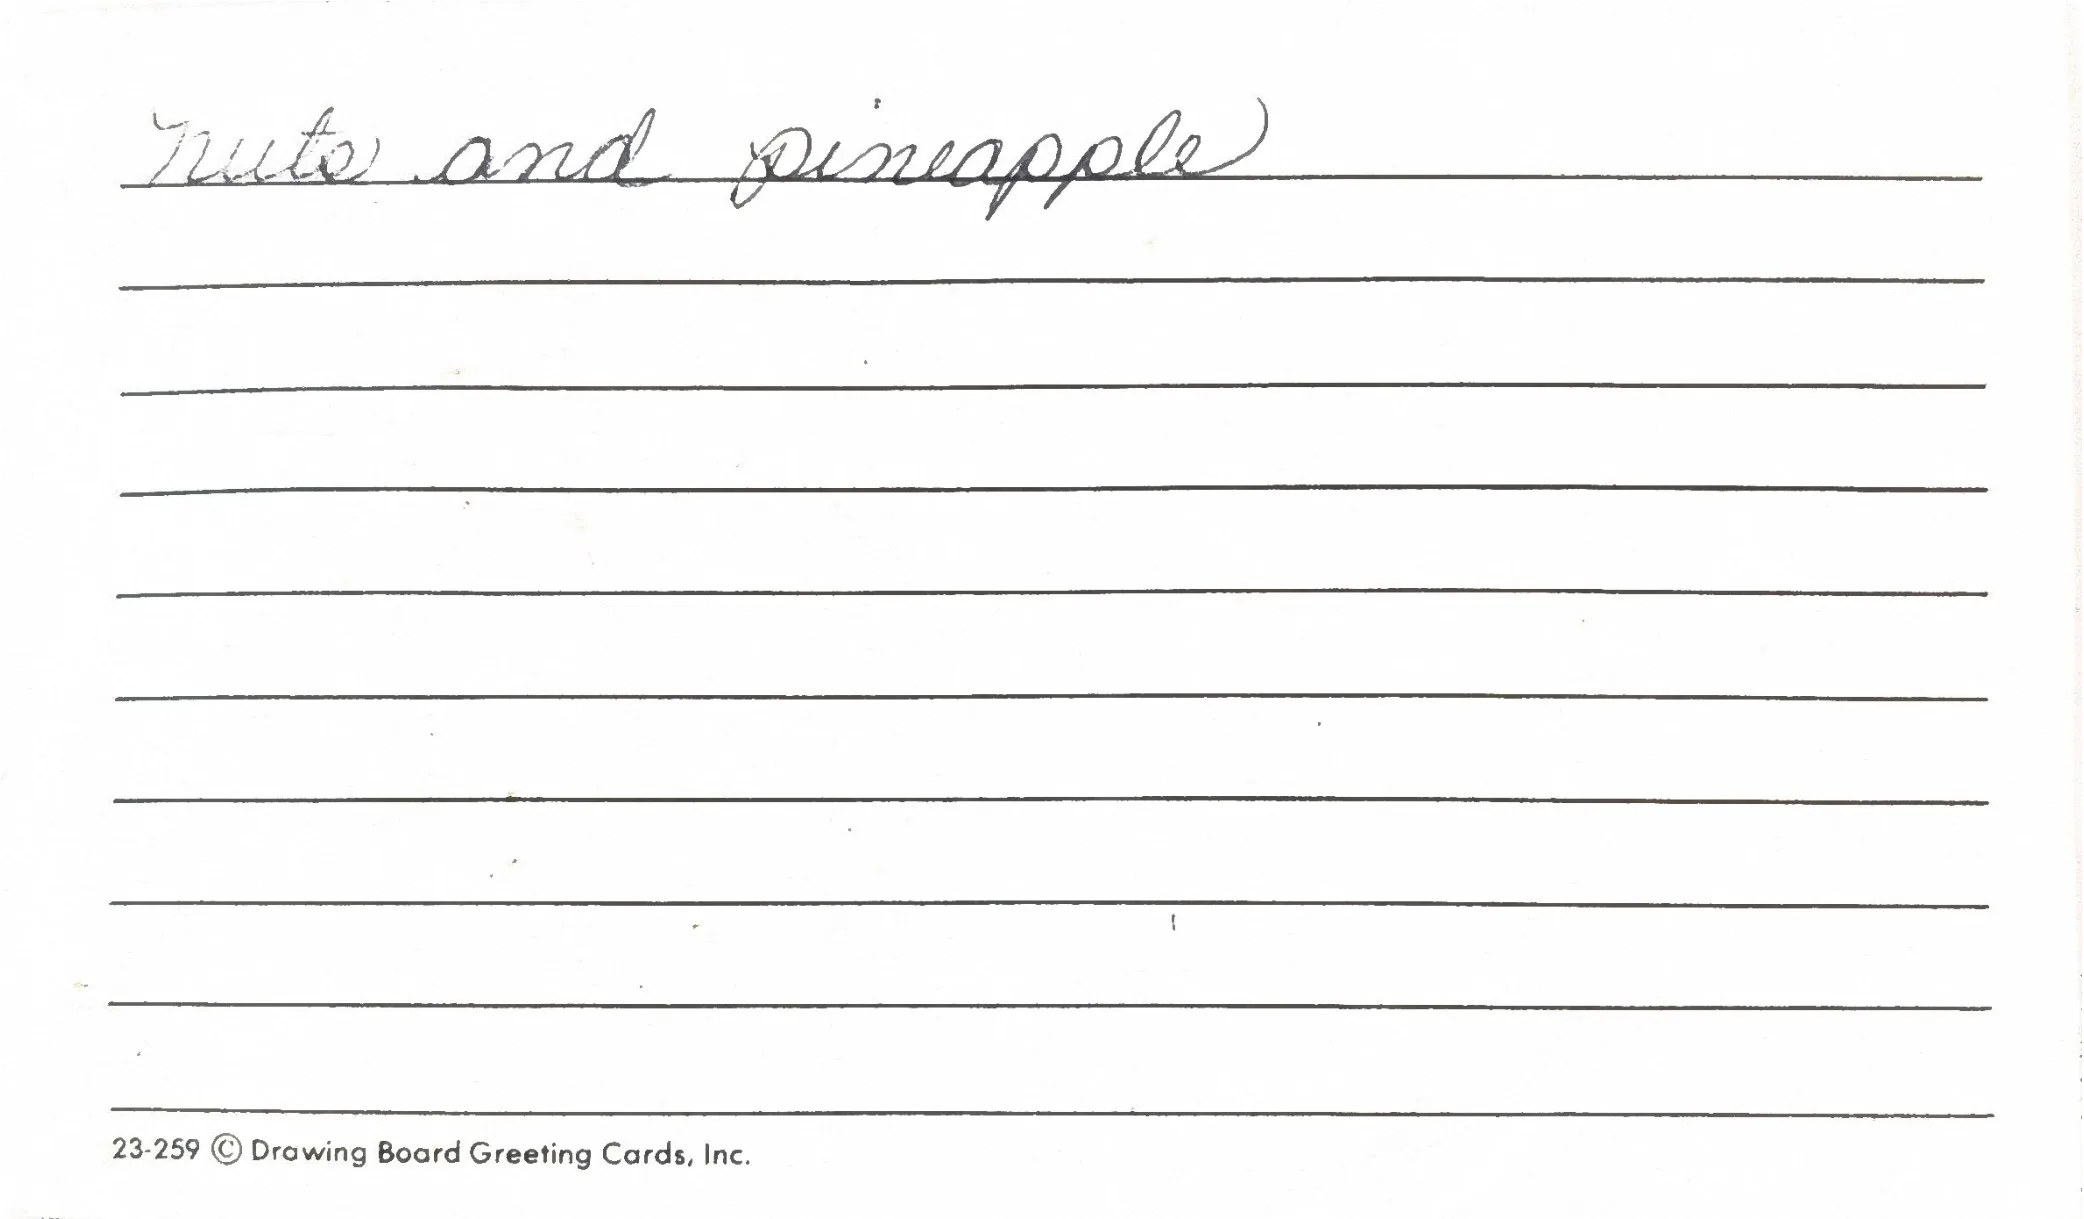 nuts and pineapple
23-259 © Drawing Board Greeting Cards, Inc.